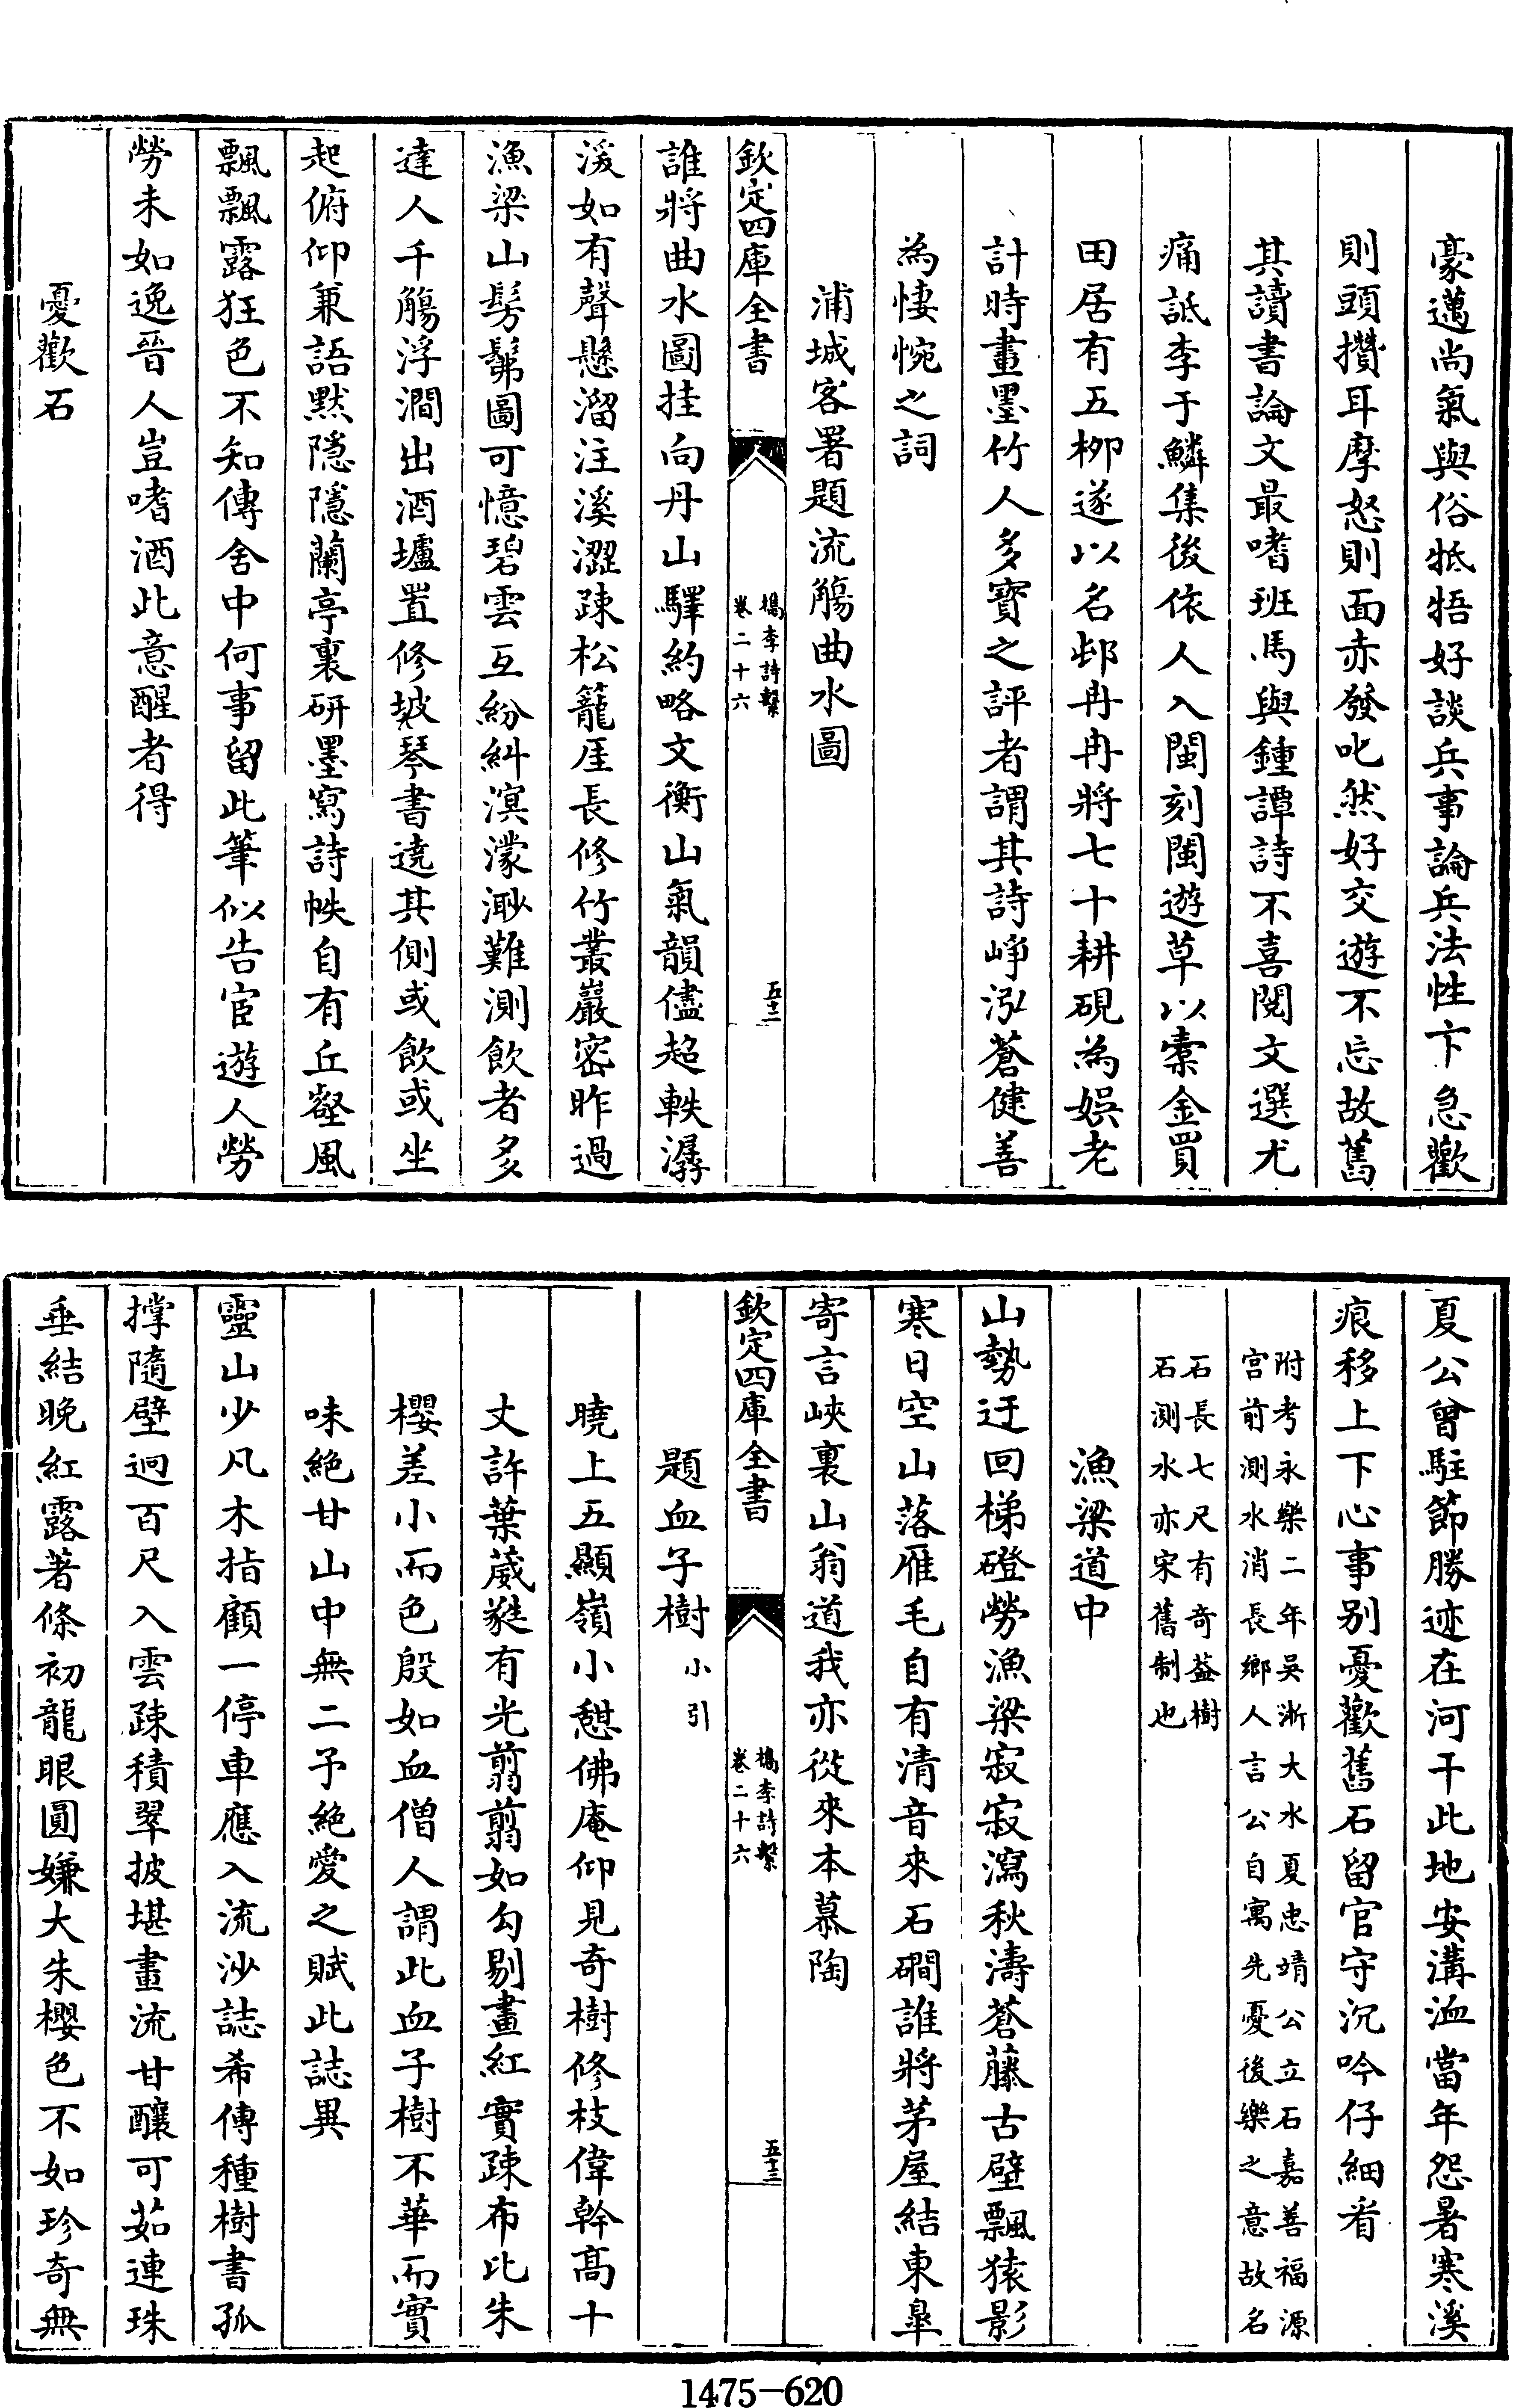 豪邁尚氣與俗牴牾好談兵事論兵法性卞急歡
則頭攢耳摩怒則面赤發叱然好交遊不忘故舊
其讀書論文最嗜班馬與鍾譚詩不喜閱文選尤
痛詆李于鱗集後依人入閩刻閩遊草以槖金買
田居有五柳遂以名邨冉冉將七十耕硯為娛老
計時畫墨竹人多寶之評者謂其詩崢泓蒼健善
為悽惋之詞
浦城客署題流觴曲水圖
欽定四庫全書
檇李詩繫
卷二十六
五十二
誰將曲水圖挂向丹山驛約略文衡山氣韻儘超軼潺
湲如有聲懸溜注溪澀疎松籠厓長修竹叢巖密昨過
漁梁山髣髴圖可憶碧雲互紛糾溟濛渺難測飲者多
達人千觴浮澗出酒壚置修坡琴書遶其側或飲或坐
起俯仰兼語默隱隱蘭亭裏研墨寫詩帙自有丘壑風
飄飄露狂色不知傳舍中何事留此筆似告宦遊人勞
勞未如逸晉人豈嗜酒此意醒者得
憂歡石
夏公曾駐節勝迹在河干此地安溝洫當年怨暑寒溪
痕移上下心事别憂歡舊石留官守沉吟仔細看
附考永樂二年吳淅大水夏忠靖公立石嘉善福源
宫前測水消長鄉人言公自寓先憂後樂之意故名
石長七尺有奇葢樹
石測水亦宋舊制也
漁梁道中
山勢迂回梯磴勞漁梁寂寂瀉秋濤蒼藤古壁飄猿影
寒日空山落雁毛自有清音來石磵誰將茅屋結東臯
寄言峽裏山翁道我亦從來本慕陶
欽定四庫全書
檇李詩繫
卷二十六
五十三
題血子樹小引
曉上五顯嶺小憇佛庵仰見奇樹修枝偉幹高十
丈許葉葳蕤有光翦翦如勾剔畫紅實疎布比朱
櫻差小而色殷如血僧人謂此血子樹不華而實
味絶甘山中無二予絶愛之賦此誌異
靈山少凡木指顧一停車應入流沙誌希傳種樹書孤
撑隨壁迥百尺入雲疎積翠披堪畫流甘釀可茹連珠
垂結晚紅露著條初龍眼圓嫌大朱櫻色不如珍奇無
1475-620